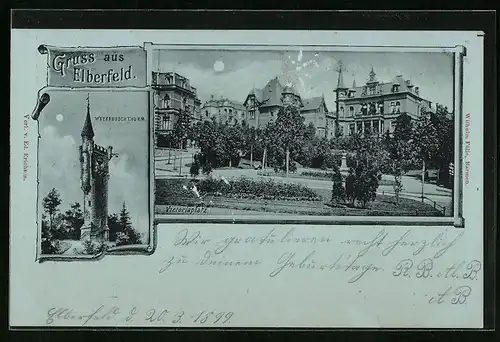 Gruss aus
Elberfeld.
WEYERBUSCHTHURM.
Victoriaplatz.
Verl. v. Ed. Erichsen.
Wilhelm Fülle, Barmen
Wir gratulieren recht herzlich
zu deinem Geburtstage. R. B. A. B.
A B.
Elberfeld d. 20. 3. 1899.